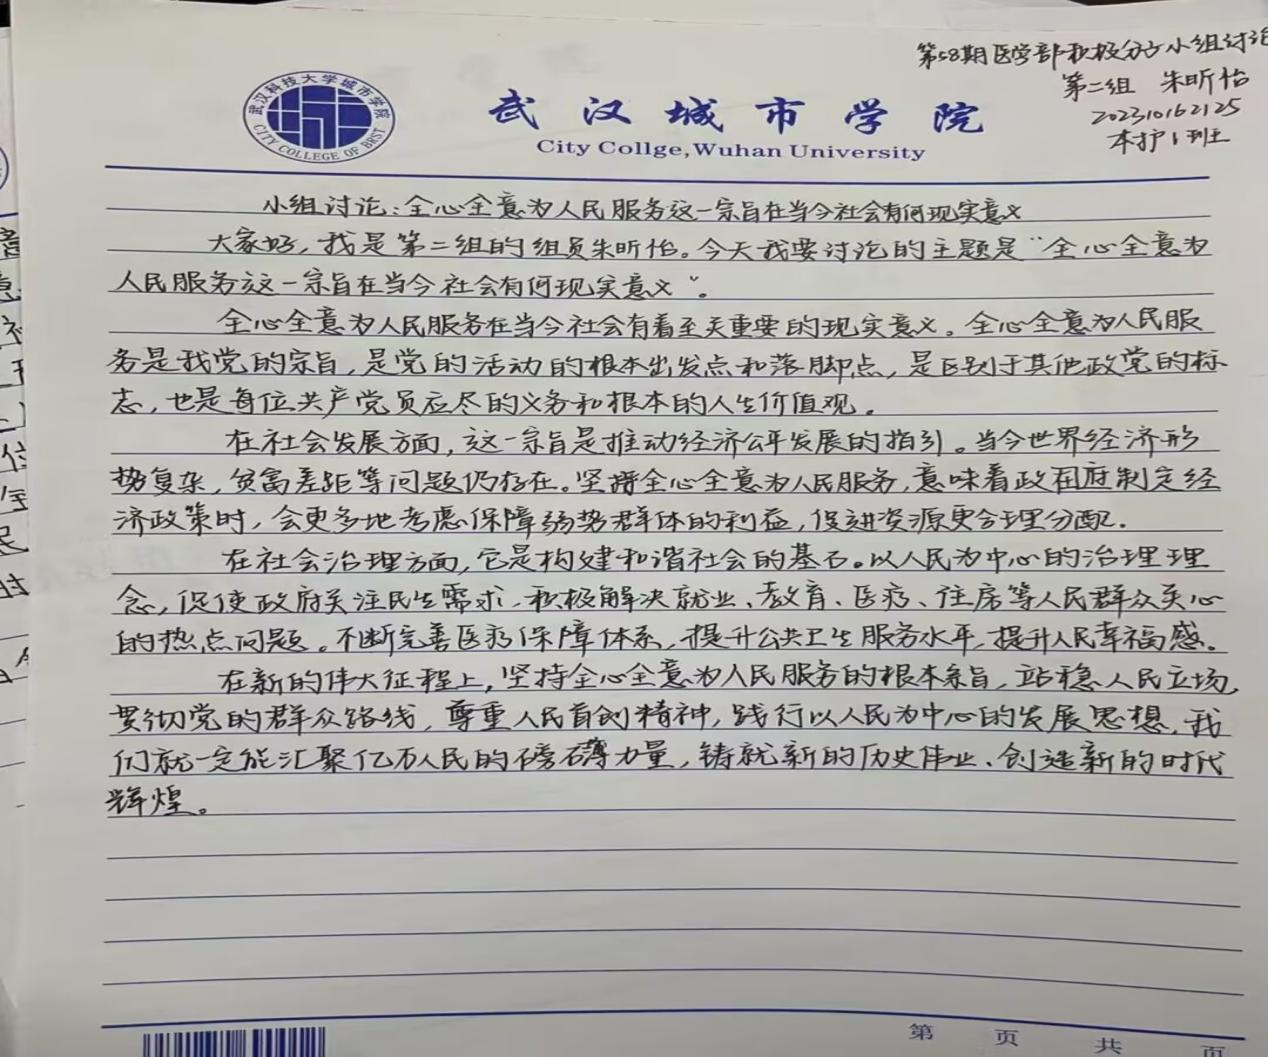 第58期医学部积极分子小组讨论
第二组 朱昕怡
202310162125
本护1班
武汉科技大学城市学院
CITY COLLEGE OF WUST
武汉城市学院
City Collge,Wuhan University
小组讨论:全心全意为人民服务这一宗旨在当今社会有何现实意义
大家好,我是第二组的组员朱昕怡。今天我要讨论的主题是“全心全意为
人民服务这一宗旨在当今社会有何现实意义”。
全心全意为人民服务在当今社会有着至关重要的现实意义。全心全意为人民服
务是我党的宗旨,是党的活动的根本出发点和落脚点,是区别于其他政党的标
志,也是每位共产党员应尽的义务和根本的人生价值观。
在社会发展方面,这一宗旨是推动经济公平发展的指引。当今世界经济形
势复杂,贫富差距等问题仍存在。坚持全心全意为人民服务,意味着政府制定经
济政策时,会更多地考虑保障弱势群体的利益,促进资源更合理分配.
在社会治理方面,它是构建和谐社会的基石。以人民为中心的治理理
念,促使政府关注民生需求、积极解决就业、教育、医疗、住房等人民群众关心
的热点问题。不断完善医疗保障体系,提升公共卫生服务水平,提升人民幸福感。
在新的伟大征程上,坚持全心全意为人民服务的根本宗旨,站稳人民立场,
贯彻党的群众路线,尊重人民首创精神,践行以人民为中心的发展思想,我
们就一定能汇聚亿万人民的磅礴力量,铸就新的历史伟业、创造新的时代
辉煌。
第 页 共 页